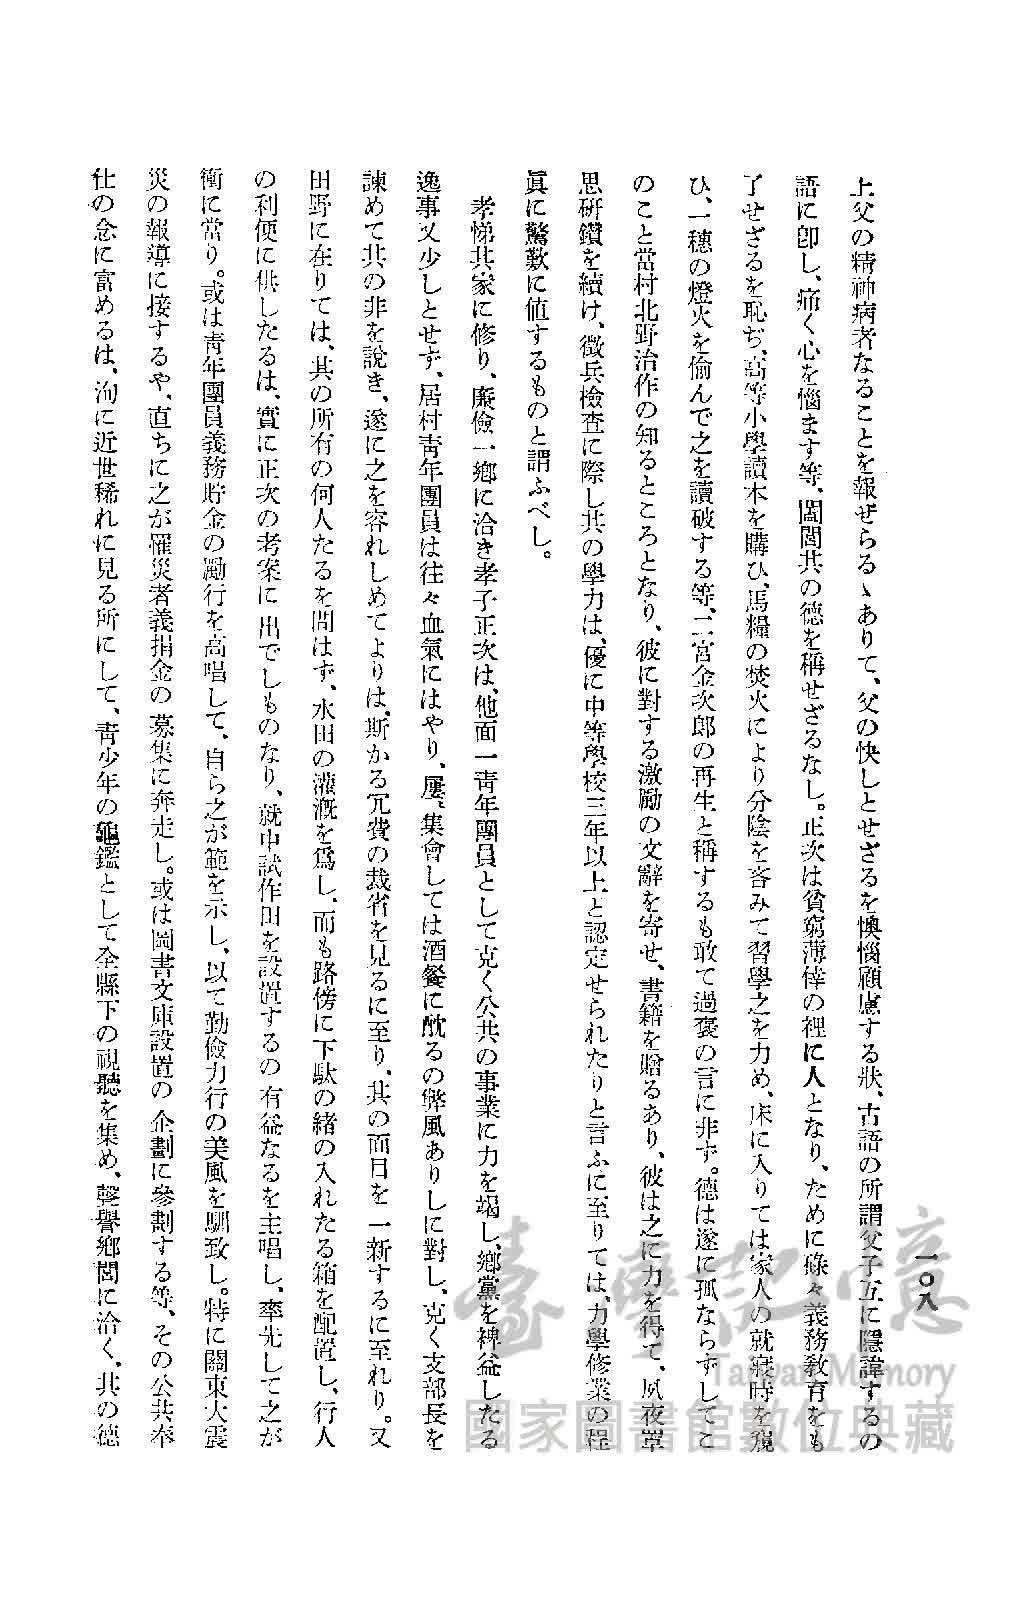 一〇八
上父の精神病者なることを報ぜらるゝありて、父の快しとせざるを懊惱顧慮する狀、古語の所謂父子互に隱諱するの
語に卽し、痛く心を惱ます等、閭閻其の德を稱せざるなし。正次は貧窮薄倖の裡に人となり、ために碌々義務敎育をも
了せざるを恥ぢ、高等小學讀本を購ひ、馬糧の焚火により分陰を吝みて習學之を力め、床に入りては家人の就寢時を窺
ひ、一穗の燈火を偷んで之を讀破する等、二宮金次郎の再生と稱するも敢て過褒の言に非ず。德は遂に孤ならずしてこ
のこと當村北野治作の知るところとなり、彼に對する激勵の文辭を寄せ、書籍を贈るあり、彼は之に力を得て、夙夜覃
思硏鑽を續け、徵兵檢査に際し其の學力は、優に中等學校三年以上と認定せられたりと言ふに至りては、力學修業の程
眞に驚歎に値するものと謂ふべし。
孝悌其家に修り、廉儉一鄕に洽き孝子正次は、他面一靑年團員として克く公共の事業に力を竭し、鄕黨を裨益したる
逸事又少しとせず、居村靑年團員は往々血氣にはやり、屢々集會しては酒餐に耽るの弊風ありしに對し、克く支部長を
諫めて其の非を說き、遂に之を容れしめてよりは、斯かる冗費の裁省を見るに至り、其の面目を一新するに至れり。又
田野に在りては、其の所有の何人たるを問はず、水田の灌漑を爲し、而も路傍に下駄の緖の入れたる箱を配置し、行人
の利便に供したるは、實に正次の考案に出でしものなり、就中試作田を設置するの有益なるを主唱し、率先して之が
衝に當り。或は靑年團員義務貯金の勵行を高唱して、自ら之が範を示し、以て勤儉力行の美風を馴致し。特に關東大震
災の報導に接するや、直ちに之が罹災者義捐金の募集に奔走し。或は圖書文庫設置の企劃に參劃する等、その公共奉
仕の念に富めるは、洵に近世稀れに見る所にして、靑少年の龜鑑として全縣下の視聽を集め、聲譽鄕閭に洽く、其の德
臺灣記憶
Taiwan Memory
國家圖書館數位典藏